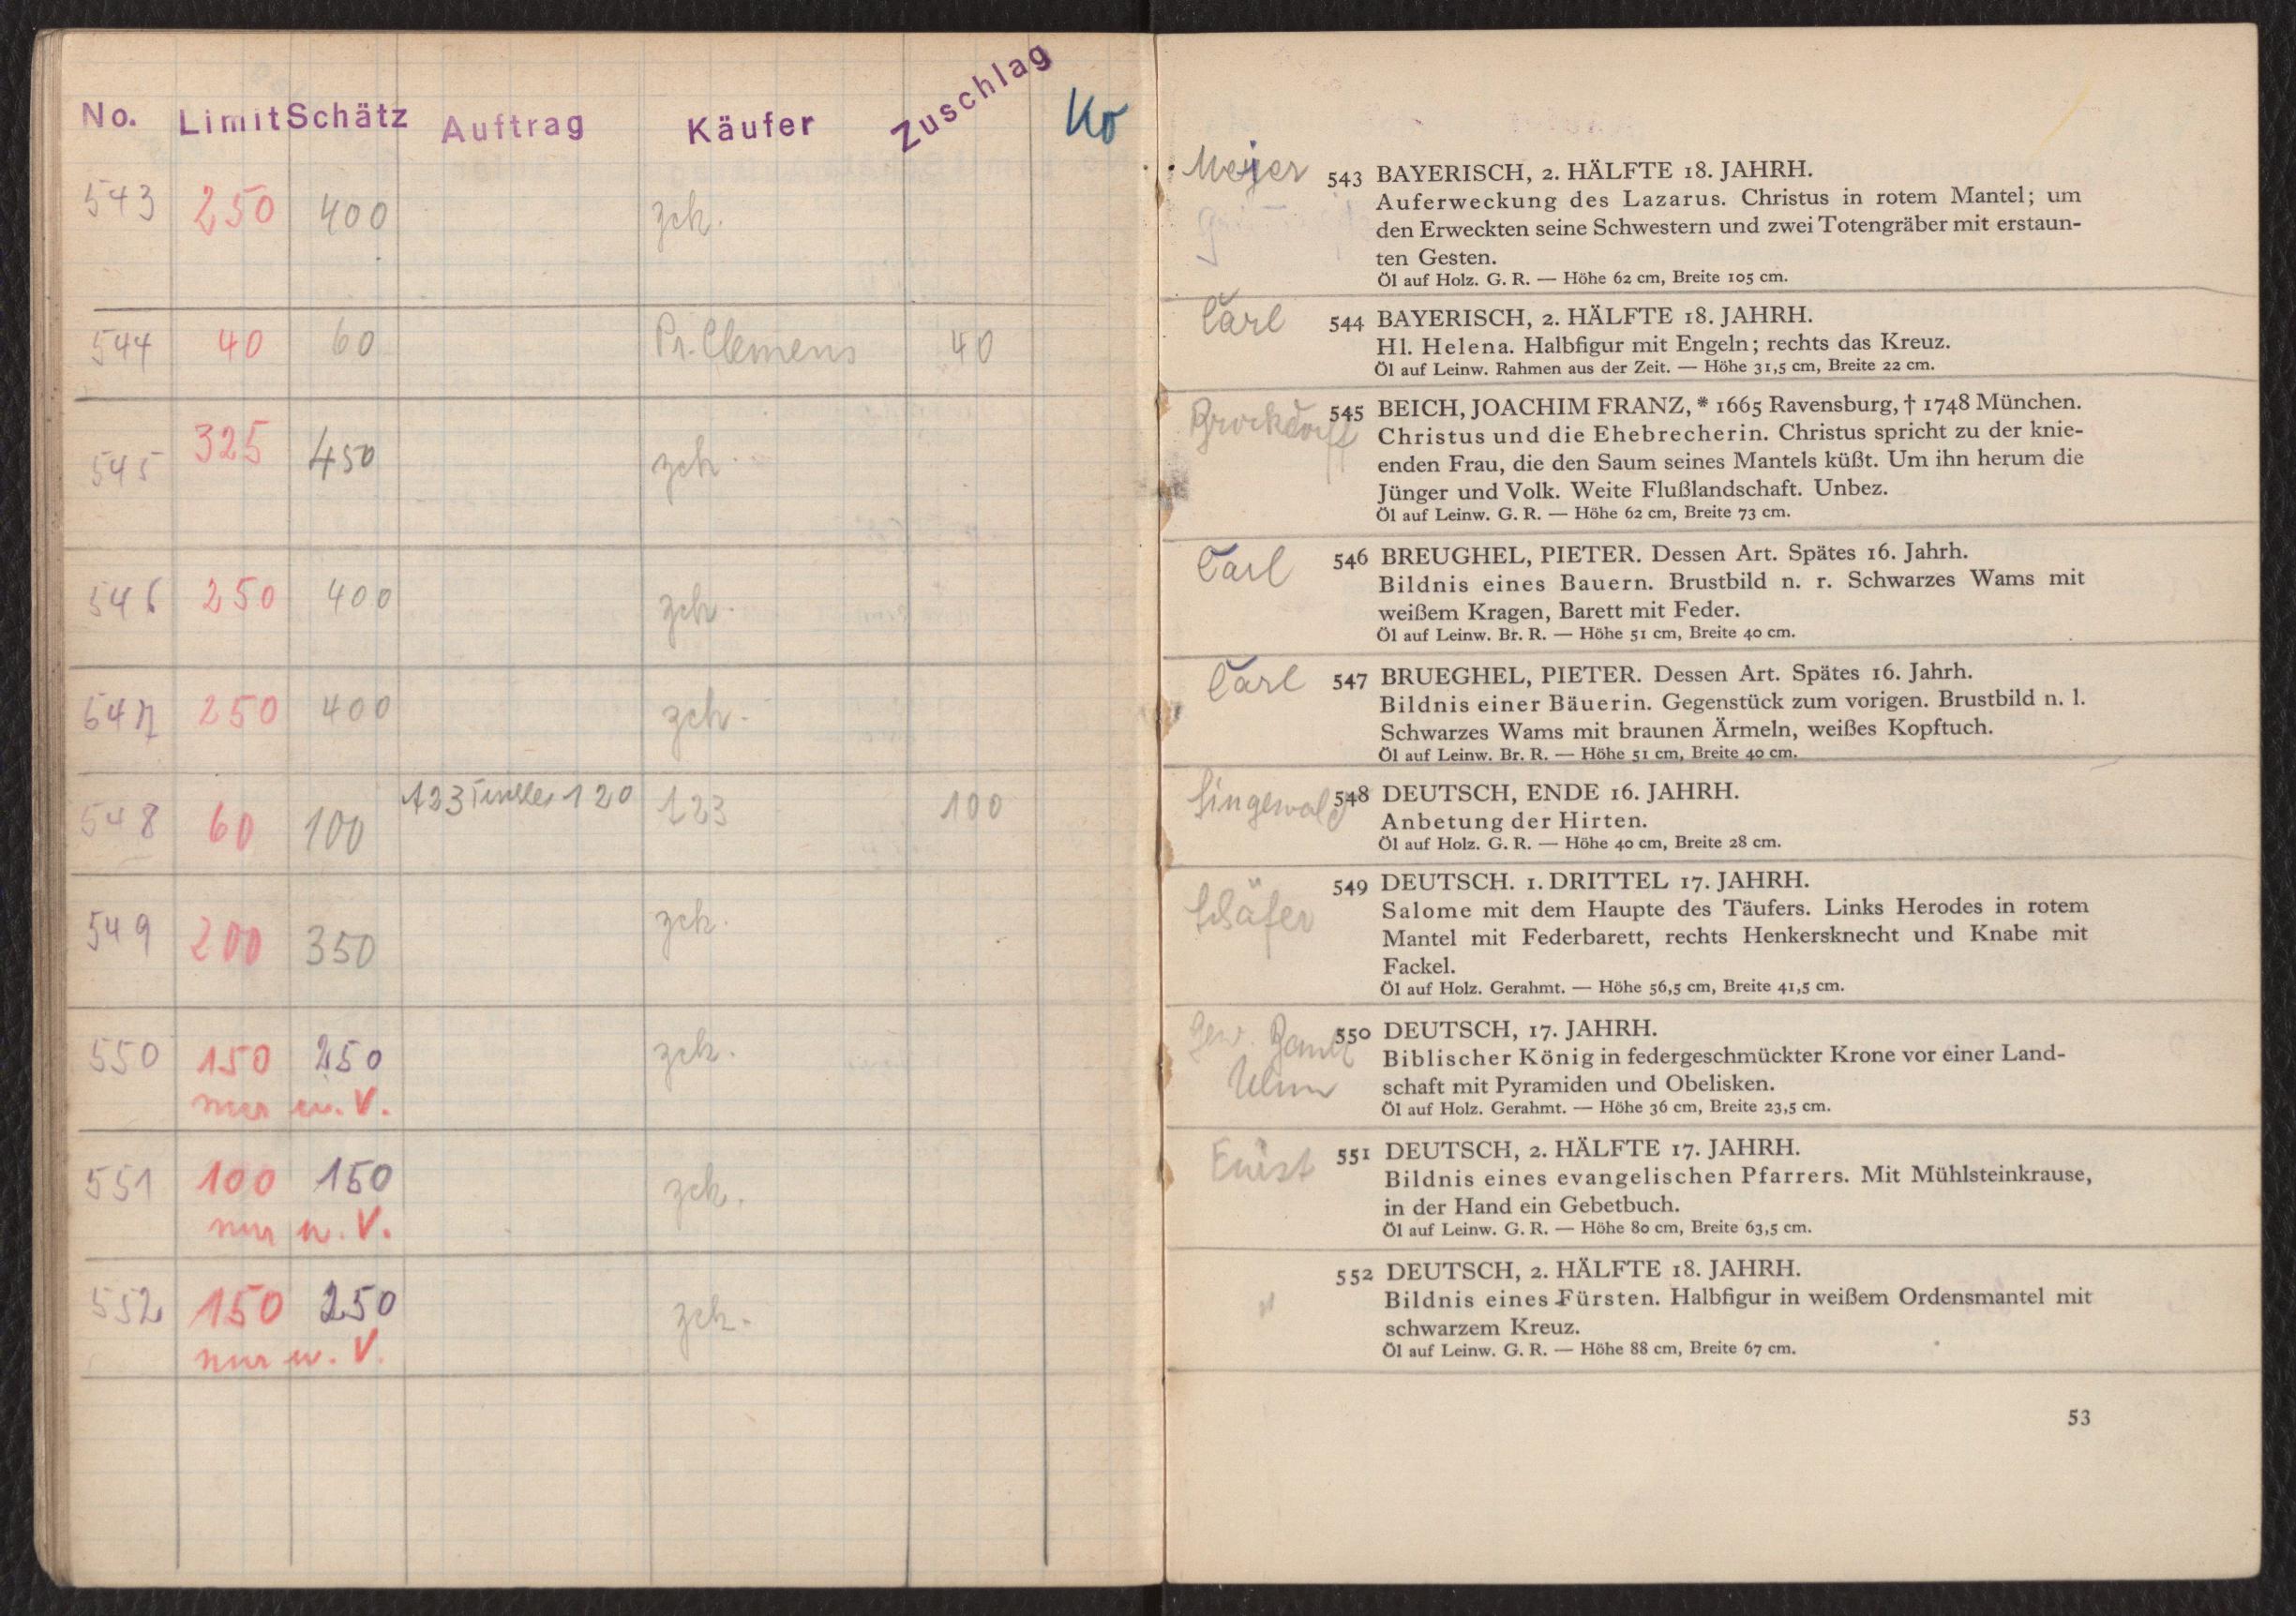 No. Limit Schätz Auftrag Käufer Zuschlag
543 250 400 zck.
544 40 60 Pr. Clemens 40
545 325 450 zck.
546 250 400 zck.
547 250 400 zck.
548 60 100 123 120 123 100
549 200 350 zck.
550 150 250 zck.
nur u. V.
551 100 150 zck.
nur u. V.
552 150 250 zck.
nur u. V.
Meyer 543 BAYERISCH, 2. HÄLFTE 18. JAHRH.
Auferweckung des Lazarus. Christus in rotem Mantel; um
den Erweckten seine Schwestern und zwei Totengräber mit erstaun-
ten Gesten.
Öl auf Holz. G. R. — Höhe 62 cm, Breite 105 cm.
Carl 544 BAYERISCH, 2. HÄLFTE 18. JAHRH.
Hl. Helena. Halbfigur mit Engeln; rechts das Kreuz.
Öl auf Leinw. Rahmen aus der Zeit. — Höhe 31,5 cm, Breite 22 cm.
Brockdorff 545 BEICH, JOACHIM FRANZ, * 1665 Ravensburg, † 1748 München.
Christus und die Ehebrecherin. Christus spricht zu der knie-
enden Frau, die den Saum seines Mantels küßt. Um ihn herum die
Jünger und Volk. Weite Flußlandschaft. Unbez.
Öl auf Leinw. G. R. — Höhe 62 cm, Breite 73 cm.
Carl 546 BREUGHEL, PIETER. Dessen Art. Spätes 16. Jahrh.
Bildnis eines Bauern. Brustbild n. r. Schwarzes Wams mit
weißem Kragen, Barett mit Feder.
Öl auf Leinw. Br. R. — Höhe 51 cm, Breite 40 cm.
Carl 547 BRUEGHEL, PIETER. Dessen Art. Spätes 16. Jahrh.
Bildnis einer Bäuerin. Gegenstück zum vorigen. Brustbild n. l.
Schwarzes Wams mit braunen Ärmeln, weißes Kopftuch.
Öl auf Leinw. Br. R. — Höhe 51 cm, Breite 40 cm.
Singewald 548 DEUTSCH, ENDE 16. JAHRH.
Anbetung der Hirten.
Öl auf Holz. G. R. — Höhe 40 cm, Breite 28 cm.
Schäfer 549 DEUTSCH. 1. DRITTEL 17. JAHRH.
Salome mit dem Haupte des Täufers. Links Herodes in rotem
Mantel mit Federbarett, rechts Henkersknecht und Knabe mit
Fackel.
Öl auf Holz. Gerahmt. — Höhe 56,5 cm, Breite 41,5 cm.
Gew. Bank 550 DEUTSCH, 17. JAHRH.
Ulm Biblischer König in federgeschmückter Krone vor einer Land-
schaft mit Pyramiden und Obelisken.
Öl auf Holz. Gerahmt. — Höhe 36 cm, Breite 23,5 cm.
551 DEUTSCH, 2. HÄLFTE 17. JAHRH.
Bildnis eines evangelischen Pfarrers. Mit Mühlsteinkrause,
in der Hand ein Gebetbuch.
Öl auf Leinw. G. R. — Höhe 80 cm, Breite 63,5 cm.
" 552 DEUTSCH, 2. HÄLFTE 18. JAHRH.
Bildnis eines Fürsten. Halbfigur in weißem Ordensmantel mit
schwarzem Kreuz.
Öl auf Leinw. G. R. — Höhe 88 cm, Breite 67 cm.
53